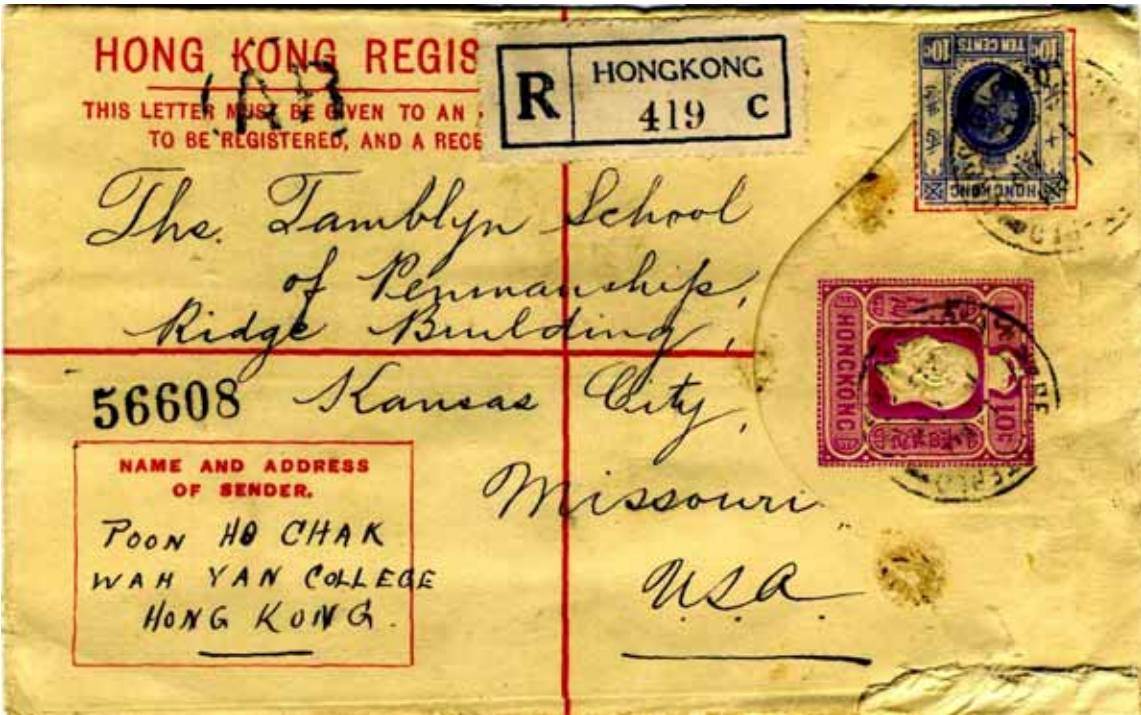 HONG KONG REGIS
AR
THIS LETTER MUST BE GIVEN TO AN
TO BE REGISTERED, AND A RECE
R
HONGKONG
419 C
10c TEN CENTS 10c
HONGKONG
The. Tamblyn School
of Penmanship,
Ridge Building,
Kansas City,
Missouri
U.S.A.
HONGKONG
10c
56608
NAME AND ADDRESS
OF SENDER.
POON HO CHAK
WAH YAN COLLEGE
HONG KONG.